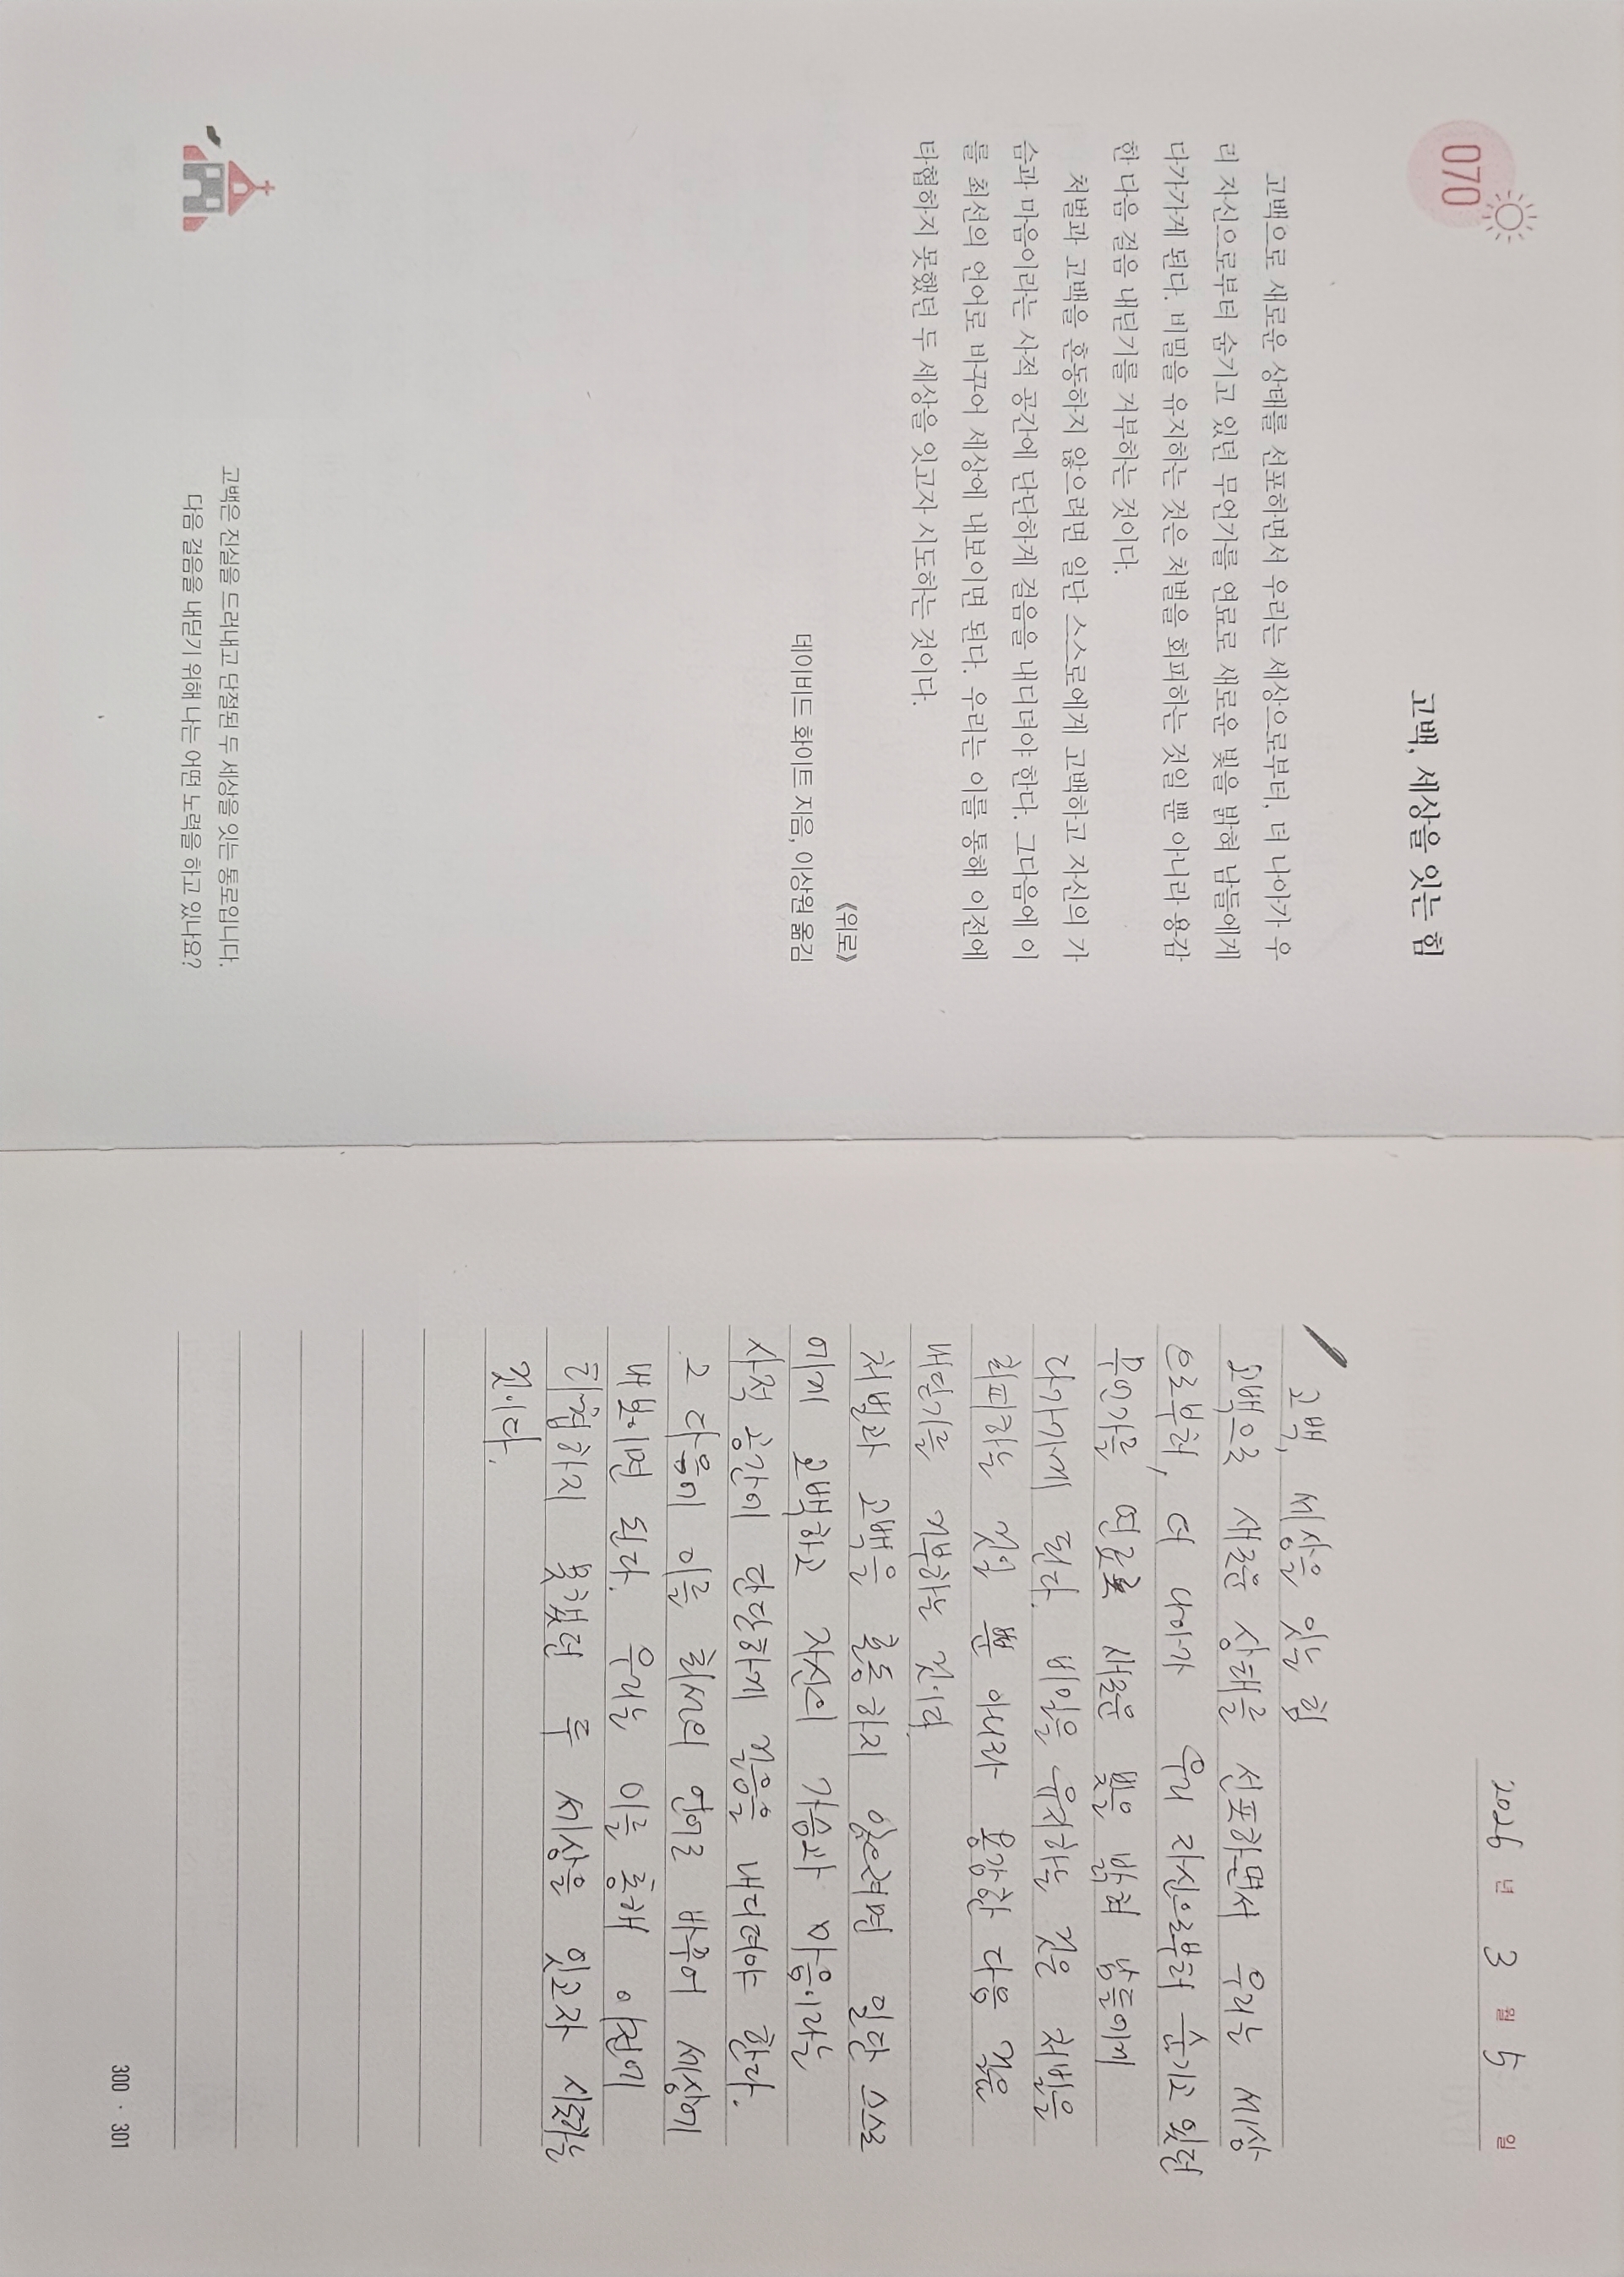 070
고백, 세상을 잇는 힘
고백으로 새로운 상태를 선포하면서 우리는 세상으로부터, 더 나아가 우
리 자신으로부터 숨기고 있던 무언가를 연료로 새로운 빛을 밝혀 남들에게
다가가게 된다. 비밀을 유지하는 것은 처벌을 회피하는 것일 뿐 아니라 용감
한 다음 걸음 내딛기를 거부하는 것이다.
처벌과 고백을 혼동하지 않으려면 일단 스스로에게 고백하고 자신의 가
슴과 마음이라는 사적 공간에 단단하게 걸음을 내디뎌야 한다. 그다음에 이
를 최선의 언어로 바꾸어 세상에 내보이면 된다. 우리는 이를 통해 이전에
타협하지 못했던 두 세상을 잇고자 시도하는 것이다.
《위로》
데이비드 화이트 지음, 이상원 옮김
고백은 진실을 드러내고 단절된 두 세상을 잇는 통로입니다.
다음 걸음을 내딛기 위해 나는 어떤 노력을 하고 있나요?
2026 년 3 월 5 일
고백, 세상을 잇는 힘
고백으로 새로운 상태를 선포하면서 우리는 세상
으로부터, 더 나아가 우리 자신으로부터 숨기고 있던
무언가를 연료로 새로운 빛을 밝혀 남들에게
다가가게 된다. 비밀을 유지하는 것은 처벌을
회피하는 것일 뿐 아니라 용감한 다음 걸음
내딛기를 거부하는 것이다.
처벌과 고백을 혼동하지 않으려면 일단 스스로
에게 고백하고 자신의 가슴과 마음이라는
사적 공간에 단단하게 걸음을 내디뎌야 한다.
그 다음에 이를 최선의 언어로 바꾸어 세상에
내보이면 된다. 우리는 이를 통해 이전에
타협하지 못했던 두 세상을 잇고자 시도하는
것이다.
300 · 301